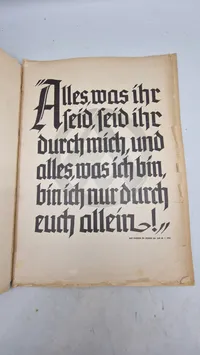 „Alles, was ihr
seid, seid ihr
durch mich, und
alles, was ich bin,
bin ich nur durch
euch allein!“